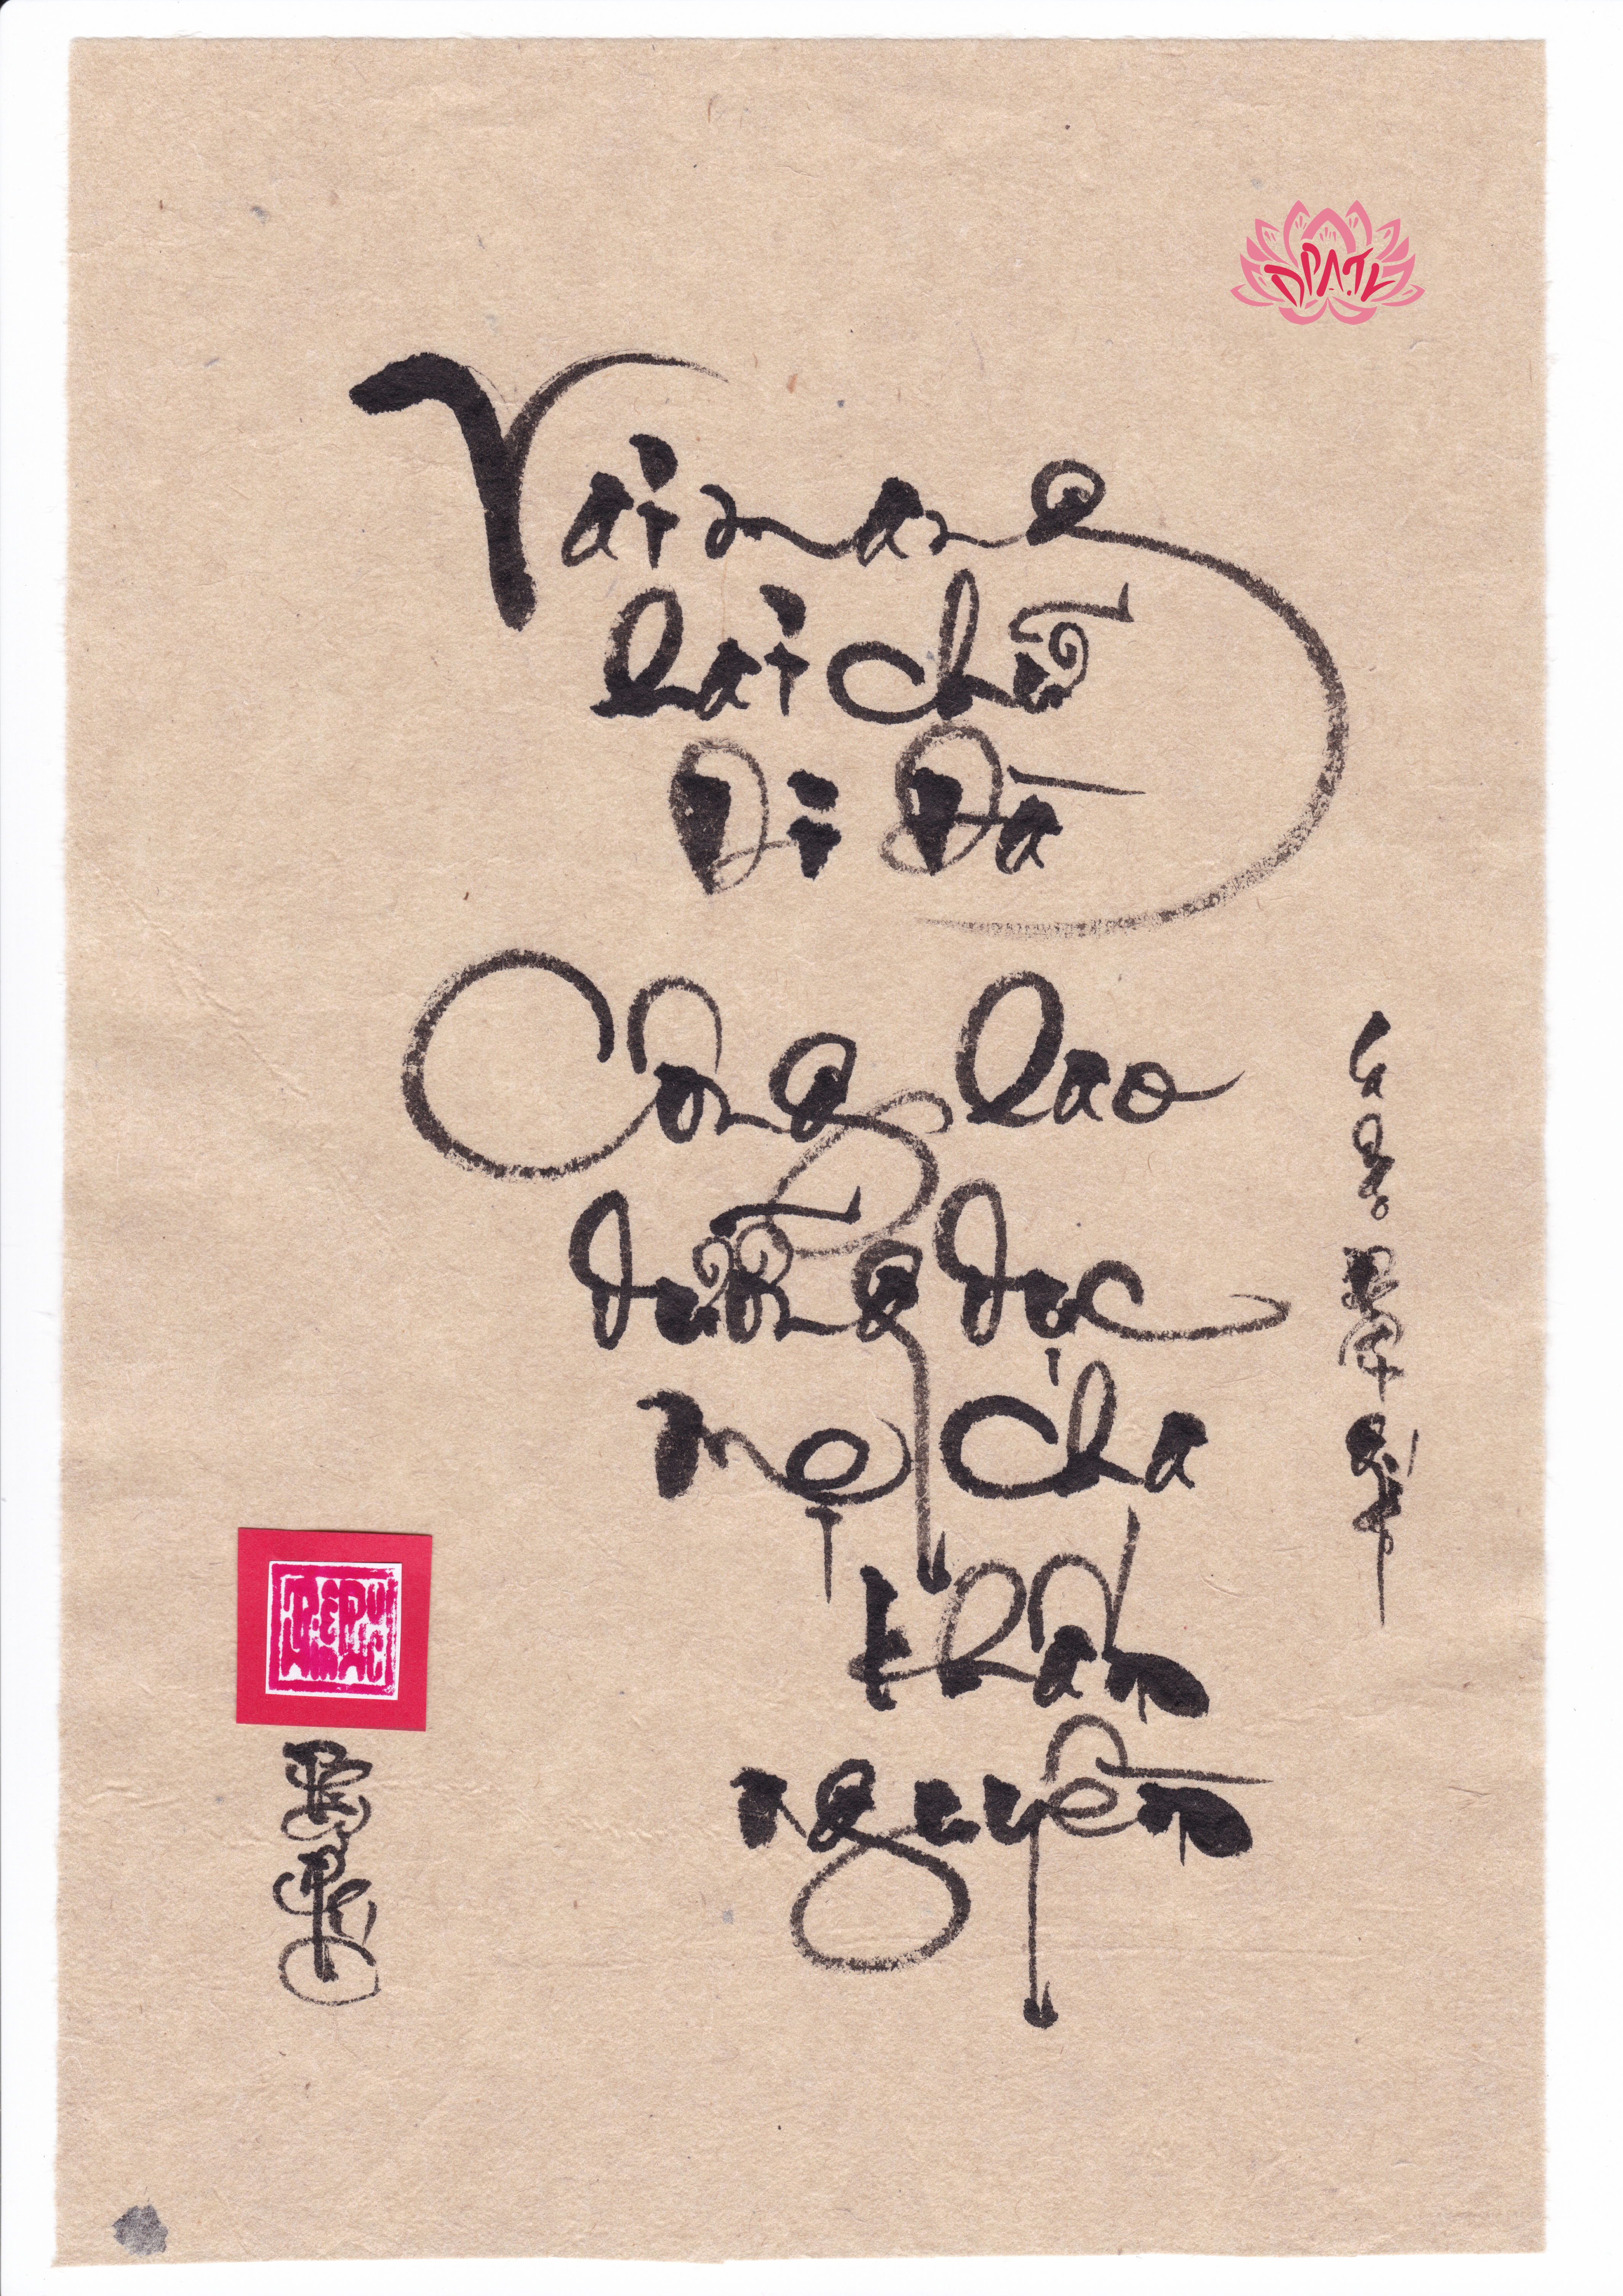 Vai mang
hai chữ
Di Đà
Công lao
dưỡng dục
mẹ cha
khấn
nguyền
DPATL